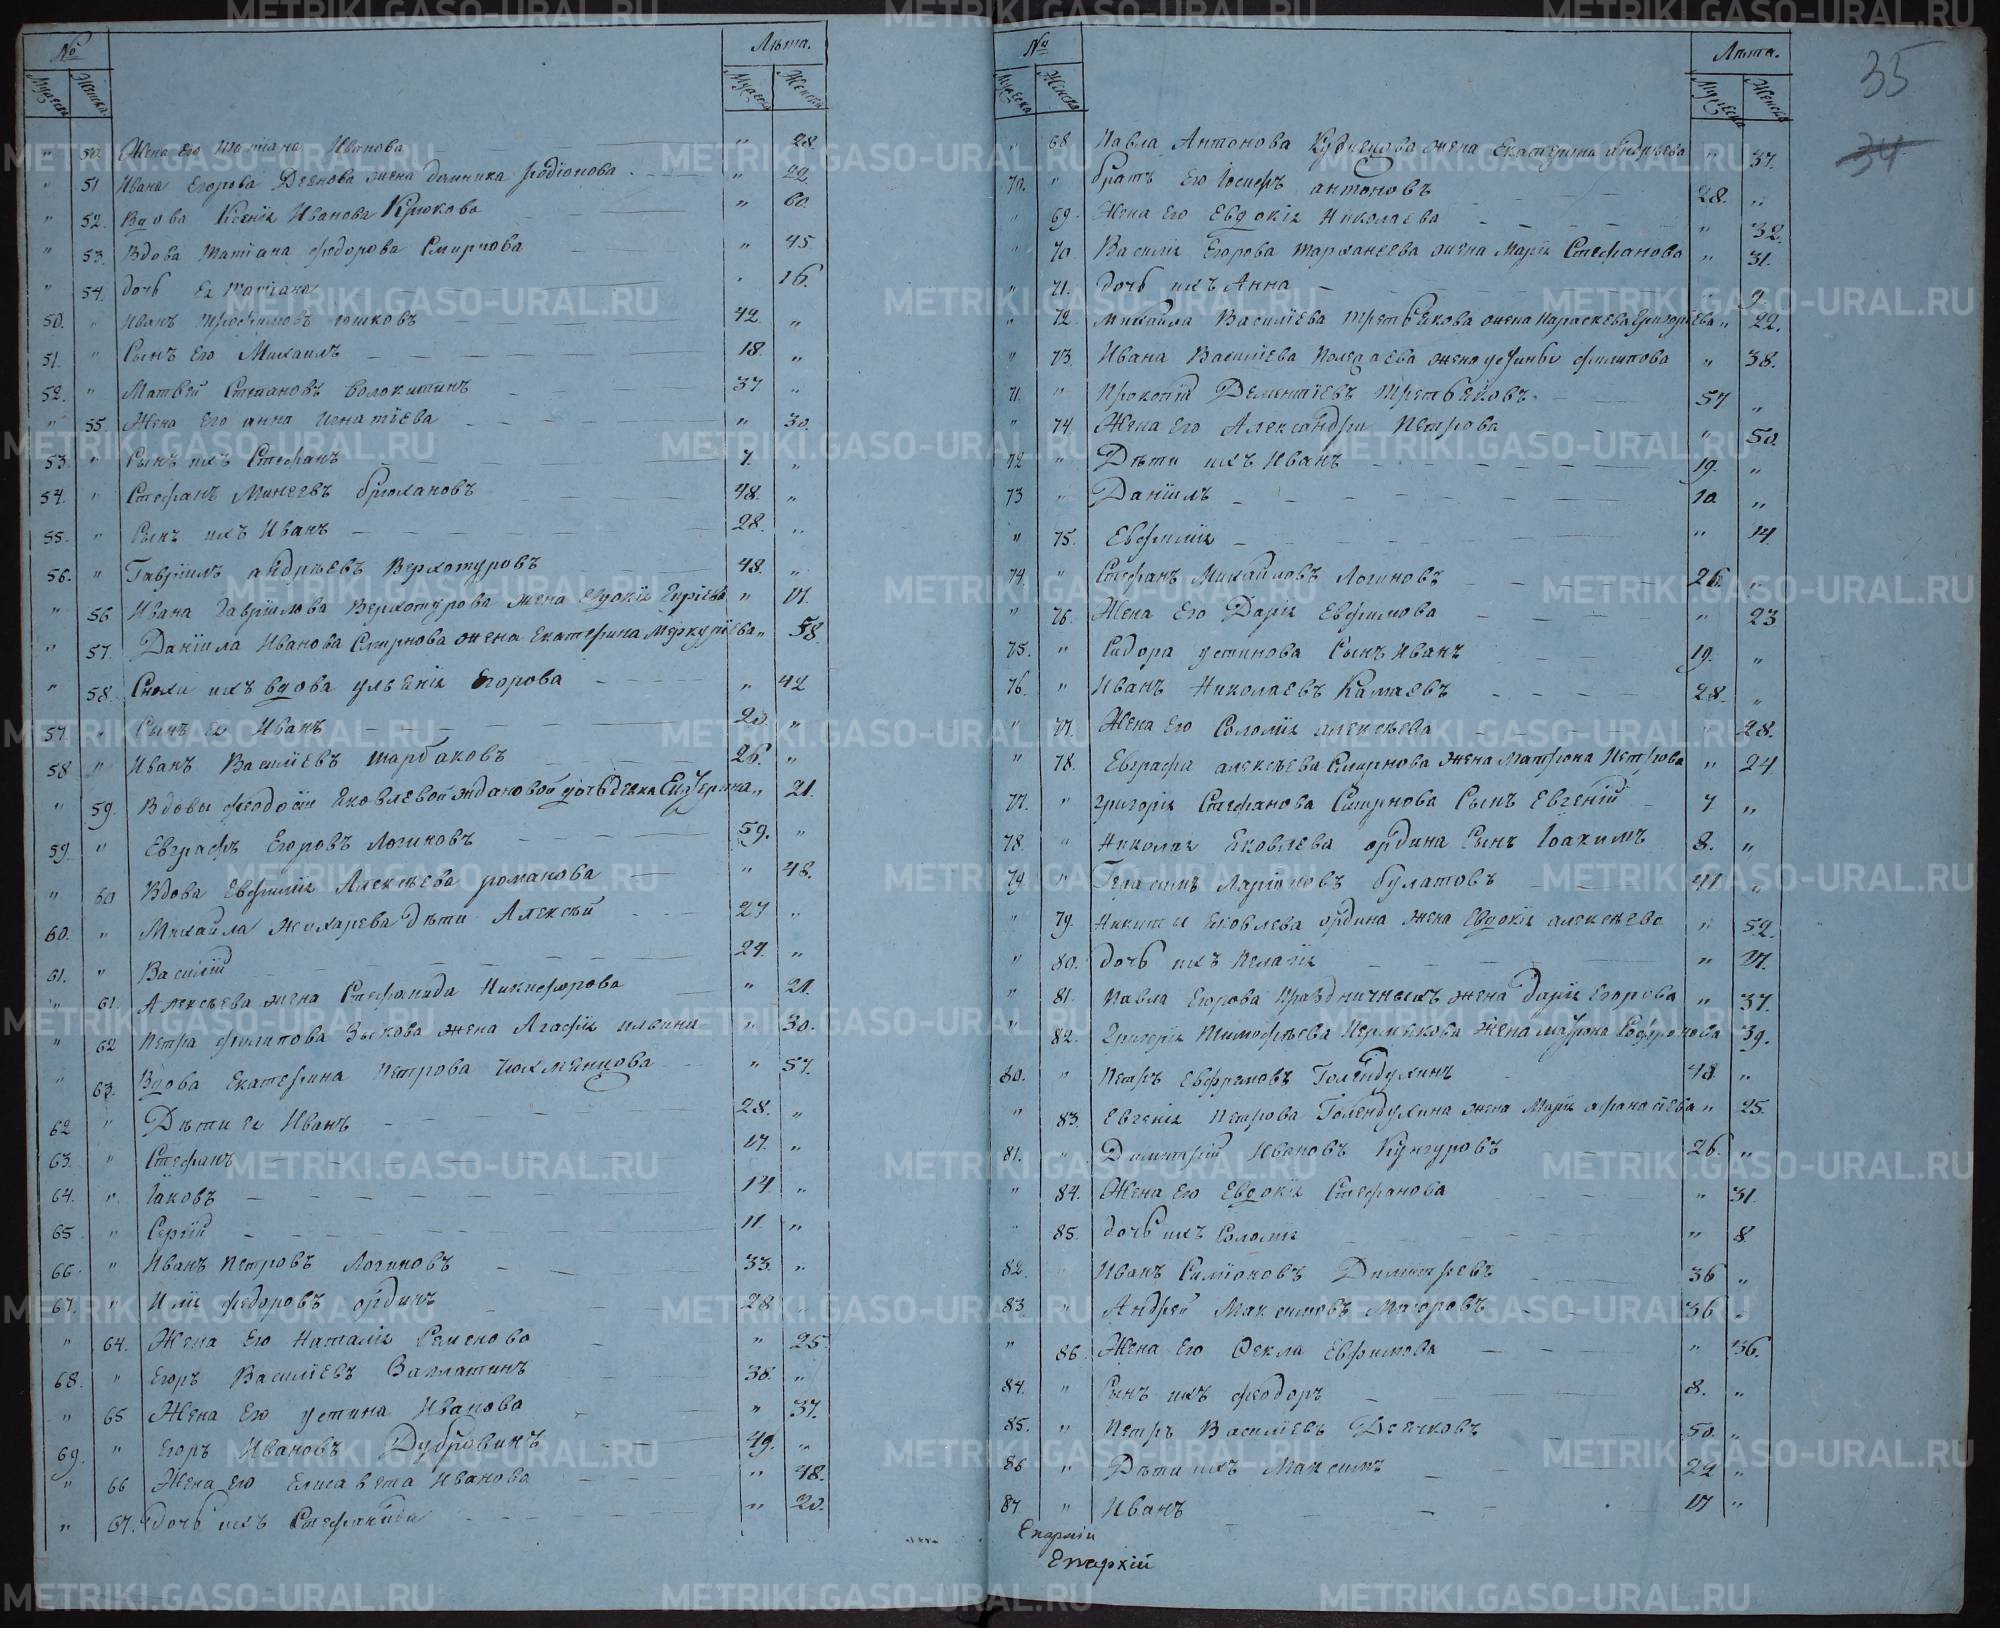 № Лѣта.
Мужеска Женска Мужеска Женска
" 50. Жена его Татiана Иванова " 28.
" 51 Ивана Егорова Деянова жена Домника Родiонова " 29.
" 52. Вдова Ксенiя Иванова Крюкова " 60.
" 53. Вдова Татiана Федорова Смирнова " 45
" 54. дочь ея Татiана " 16.
50. " Иванъ Трофимовъ 42. "
51. " Сынъ его Михаилъ 18. "
52. " Матвей Степановъ Волокитинъ 37. "
" 55 Жена его Анна Игнатiева " 30.
53. " Сынъ ихъ Стефанъ 7. "
54. " Стефанъ Минеевъ Брюхановъ 48. "
55. " Сынъ ихъ Иванъ 28. "
56. " Гаврiилъ Андрѣевъ Верхотуровъ 48. "
" 56 Ивана Гаврiилова Верхотурова жена Евдокiя Гурiева " 17.
" 57. Данiила Иванова Смирнова жена Екатерина Меркурiева " 58
" 58. Снохи ихъ вдова Улянiя Егорова " 42
57. " Сынъ ея Иванъ 20. "
58 " Иванъ Василiевъ 26. "
" 59. Вдовы Феодосiи Яковлевой Ждановой дочь девка Екатерина " 21.
59 " Евграфъ Егоровъ Логиновъ 59. "
" 60 Вдова Евфимiя Алексѣева Романова " 48.
60. " Михаила Жихарева дѣти Алексѣй 27 "
61. " Василiй 24. "
" 61. Алексѣева жена Стефанида Никифорова " 21.
" 62 Петра Филипова Зыкова жена Агафiя Ильина " 30.
" 63. Вдова Екатерина Петрова " 57.
62 " Дѣти ея Иванъ 28. "
63. " Стефанъ 17. "
64. " Iаковъ 14 "
65 " Сергiй 11. "
66. " Иванъ Петровъ Логиновъ 33. "
67. " Илiя Федоровъ Ординъ 28. "
" 64. Жена его Наталiя Семенова " 25.
68. " Егоръ Василiевъ Заплатинъ 38. "
" 65 Жена его Устина Иванова " 37.
69. " Егоръ Ивановъ Дубровинъ 49. "
" 66 Жена его Елисавета Иванова " 48.
" 67. дочь ихъ Стефанида " 20.
№ Лѣта.
Мужеска Женска Мужеска Женска
35
34
" 68. Павла Антонова Кузнецова жена Екатерина Андрѣева " 37.
70. " братъ его Iосифъ Антоновъ 28. "
" 69. Жена его Евдокiя Николаева " 32.
" 70. Василiя Егорова Тарханеева жена Марiя Стефанова " 31.
" 71. дочь ихъ Анна " 9.
" 72. Михаила Василiева Третьякова жена Параскева Григорiева " 22.
" 73. Ивана Василiева Полежаева жена Устинья Филипова " 38.
71. " Прокопiй Дементiевъ Третьяковъ 57 "
" 74 Жена его Александра Петрова " 50.
72 " Дѣти ихъ Иванъ 19. "
73 " Данiилъ 10 "
" 75. Евфимiя " 14.
74. " Стефанъ Михайловъ Логиновъ 26. "
" 76. Жена его Дарiя Евфимова " 23
75. " Сидора Устинова Сынъ Иванъ 19. "
76. " Иванъ Николаевъ Камаевъ 28. "
" 77. Жена его Соломiя Алексѣева " 28.
" 78. Евграфа Алексѣева Смирнова жена Матрона Петрова " 24
77. " Григорiя Стефанова Смирнова Сынъ Евгенiй 7 "
78. " Николая Яковлева Ордина Сынъ Iоакимъ 8. "
79 " Герасимъ Ларiоновъ Булатовъ 41 "
" 79. Никиты Яковлева Ордина жена Евдокiя Алексѣева " 52.
" 80. дочь ихъ Пелагiя " 17.
" 81. Павла Егорова Праздничныхъ жена Дарiя Егорова " 37.
" 82. Григорiя Тимофѣева Пермякова Жена Матрона Софронова 39.
80. " Петръ Евфремовъ Голендухинъ 48 "
" 83. Евгенiя Петрова Голендухина жена Марiя Афанасiева " 25.
81. " Димитрiй Ивановъ Кунгуровъ 26. "
" 84. Жена его Евдокiя Стефанова " 31.
" 85. дочь ихъ Соломiя " 8.
82. " Иванъ Симiоновъ Димитрѣевъ 36 "
83. " Андрей Максимовъ 36 "
" 86 Жена его Фекла Евфимова " 36.
84. " Сынъ ихъ Феодоръ 8. "
85. " Петръ Василiевъ Деячковъ 50. "
86 " Дѣти ихъ Максимъ 22 "
87 " Иванъ 17 "
Епархiи
Епархiй